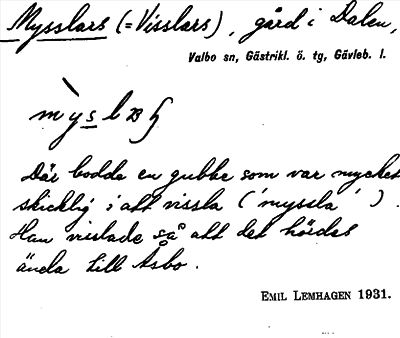 Mysslars (= Visslars), gård i Dalen,
Valbo sn, Gästrikl. ö. tg, Gävleb. l.
Där bodde en gubbe som var mycket
skicklig i att vissla ('myssla').
Han visslade så att det hördes
ända till Åsbo.
EMIL LEMHAGEN 1931.